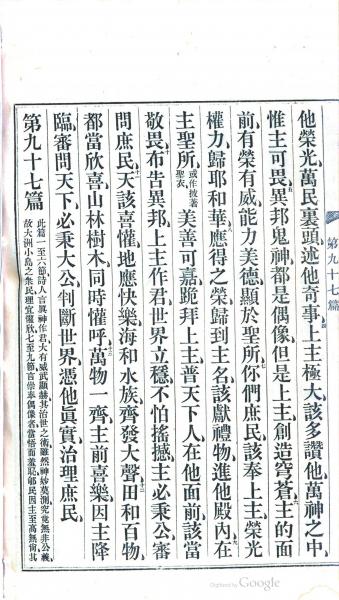 他榮光、萬民裏頭述他奇事、上主極大、該多讚他、萬神之中、
惟主可畏、異邦鬼神、都是偶像、但是上主、創造穹蒼、主的面
前、有榮有威、能力美德、顯於聖所、你們庶民、該奉上主、榮光
權力、歸耶和華、應得之榮、歸到主名、該獻禮物、進他殿內、在
主聖所、或作披著聖衣美善可嘉、跪拜上主、普天下人、在他面前、該當
敬畏、布告異邦、上主作君、世界立穩、不怕搖撼、主必秉公、審
問庶民、天該喜懽、地應快樂、海和水族、齊發大聲、田和百物、
都當欣喜、山林樹木、同時懽呼、萬物一齊、主前喜樂、因主降
臨、審問天下、必秉大公、判斷世界、憑他眞實、治理庶民、
第九十七篇 此篇一至六節、詩人言眞神作君、大有威武顯赫、其治世之術、雖然神妙莫測、究竟無非公義、
故大洲小島之衆民、理宜懽欣、七至九節、言崇奉偶像者、當悟而羞恥、郇民因主至高無尚、其
第九十七篇
六
七
八
十一
十二
十三
Digitized by Google